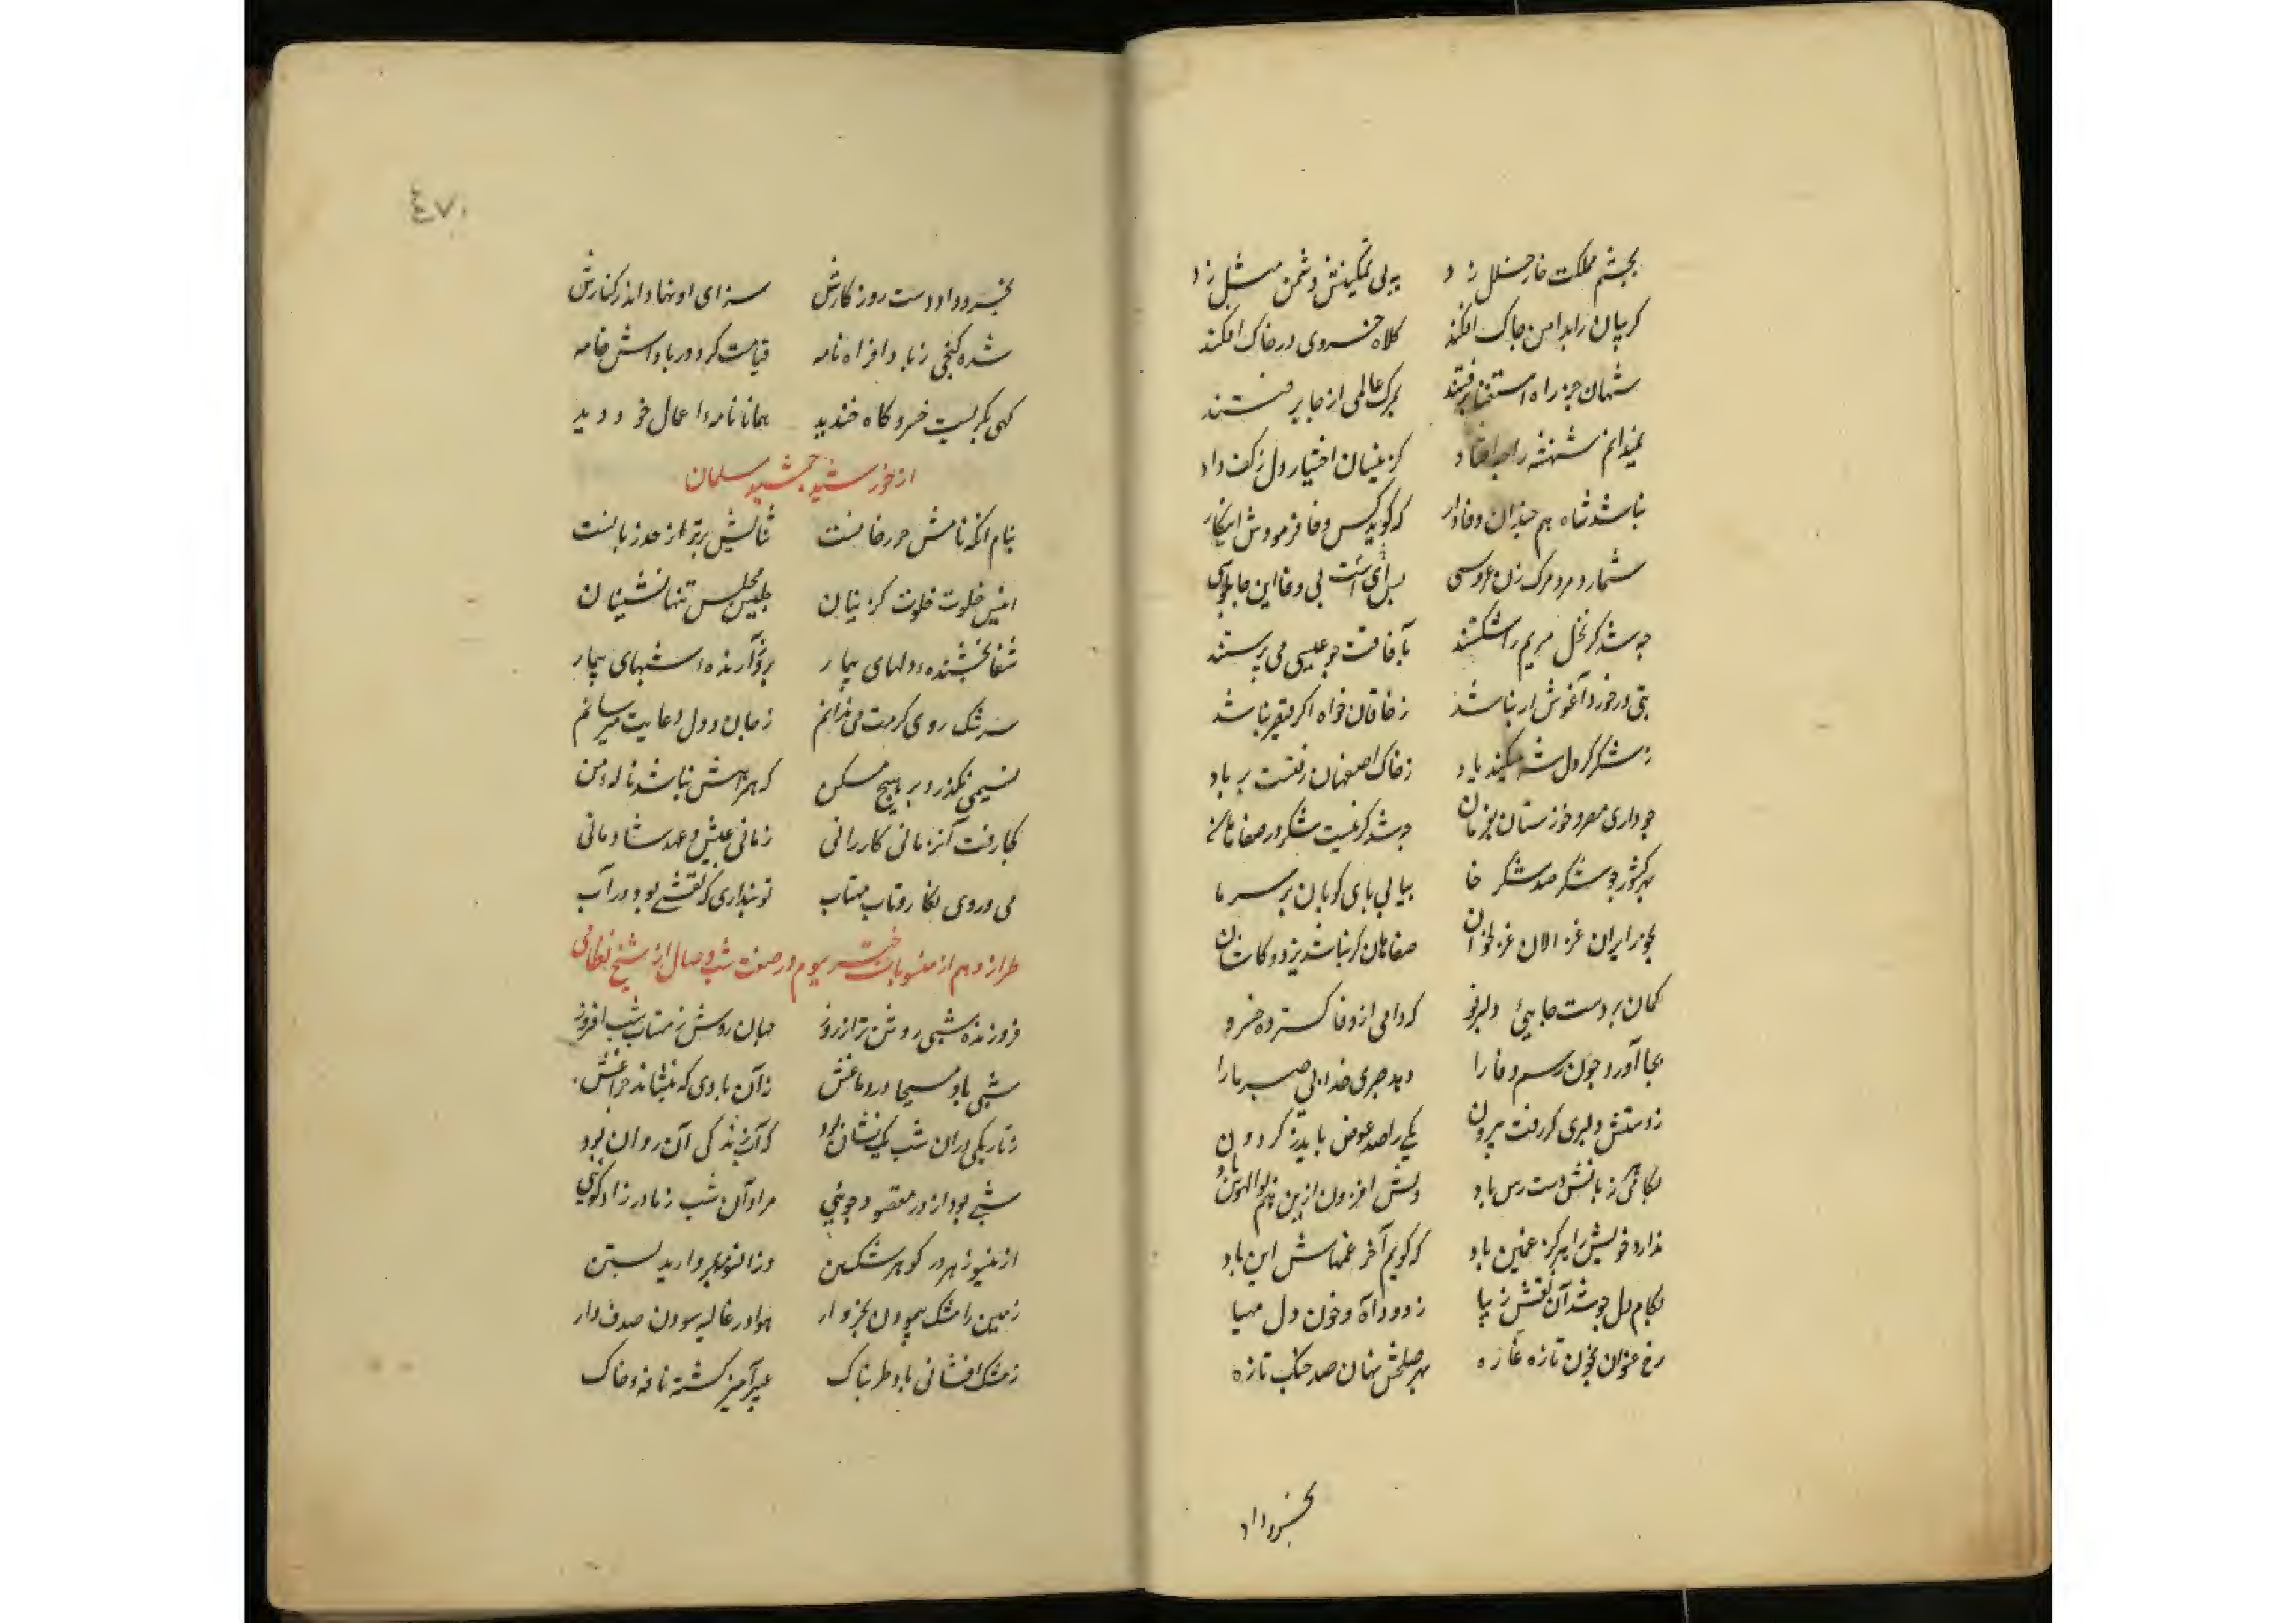 بچشم مملکت خار خلل زد پی بی تمکینیش دشمن مثل زد
کریبان را بدامن چاک افکند کلاه خسروی در خاک افکند
شهان جز راه استغنا نرفتند بمرک عالمی از جا نرفتند
نمیدانم شهنشه را چه افتاد کزینسان اختیار دل ز کف داد
نباشد شاه هم چندان وفادار که کوید کس وفا فرمودش این کار
شمارد مرد مرک زن عروسی برای است بی وفا این چاپلوسی
چه شد کر نخل مریم را شکستند بآفاقت چو عیسی می پرستند
بتی در خورد آغوش ار نباشد ز خاقان خواه اکر قیصر نباشد
ز شکر کر دل شه میکند یاد ز خاک اصفهان رفتست بر باد
چو داری مصر و خوزستان بفرمان چه شد کر نیست شکر در صفاهان
بهر کشور چو شکر صد شکر خا بیابی پای کوبان بر سر ما
بجز ایران غزالان غزلخوان صفاهان کر نباشد یزد و کاشان
کمان بردست جایی دلبر نو که دامی از وفا کسترده خسرو
بجا آورد چون رسم وفا را دهد صبری خدا بی صبر ما را
ز دستش دلبری کر رفت بیرون یکی را صد عوض باید ز کردون
نکاهی کز زبانش دست رس باد دلش افزون ازین هم بوالهوس باد
ندارد خویش را هرکز غمین باد که کویم آخر غمهاش این باد
بکام دل چو شد آن نقش زیبا ز دود آه و خون دل مهیا
رخ عنوان بخون تازه غازه بهر صلحش نهان صد جنک تازه
بخسرو داد
٠٧٤
بخسرو داد دست روزکارش سزای او نهاد اندر کنارش
شده کنجی ز باد افراه نامه قیامت کرد در پاداش خامه
کهی بکریست خسرو کاه خندید همانا نامه اعمال خود دید
از خورشید جمشید سلمان
بنام انکه نامش حرز جانست ثنایش برتر از حد زبانست
انیس خلوت خلوت کزینان جلیس مجلس تنها نشینان
شفا بخشنده دلهای بیمار بروز آرنده شبهای بیمار
سرشک روی کرمت می دوانم ز جان و دل دعایت میرسانم
نسیمی نکذرد بر هیچ مسکن که همراهش نباشد ناله من
کجا رفت آنزمانی کامرانی زمانی عیش و عهد شادمانی
می و روی نکار و تاب مهتاب تو پنداری که نقشی بود در آب
طراز دهم از منسوبات خسرو سیوم در صفت شب وصال از شیخ نظامی
فروزنده شبی روشن تر از روز جهان روشن ز مهتاب شب افروز
شبی باد مسیحا در دماغش نه آن بادی که بنشاند چراغش
ز تاریکی در آن شب یک نشان بود که آب زندکی آن روان بود
شبی بود از در مقصود جوئی مراد آن شب ز مادر زاد کوئی
از ینسو زهره در کوهر شکستن وز انسو مه بمروارید بستن
زمین را مشک پیمودن بخروار هوا در غالیه سودن صدف وار
ز مشک افشانی باد طربناک عبیر آمیز کشته نافه خاک